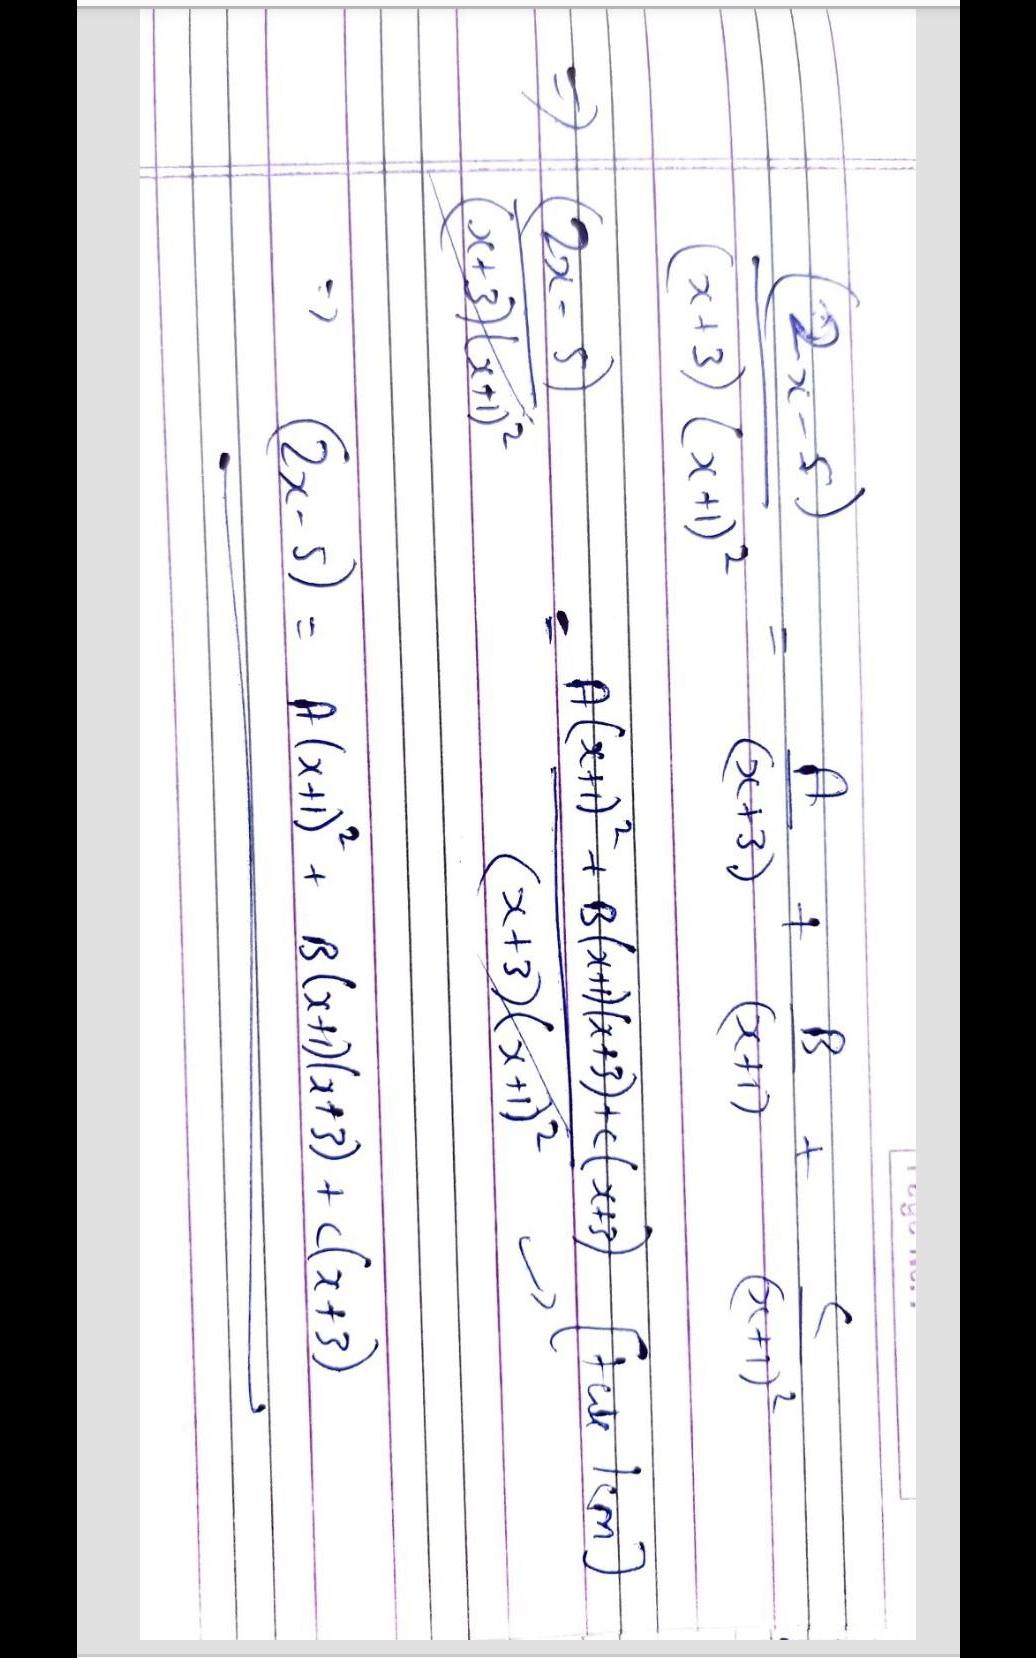 Page No.:
(2x-5) / (x+3)(x+1)² = A / (x+3) + B / (x+1) + C / (x+1)²
=> (2x-5) / (x+3)(x+1)² = A(x+1)² + B(x+1)(x+3) + C(x+3) / (x+3)(x+1)² → [take lcm]
=> (2x-5) = A(x+1)² + B(x+1)(x+3) + C(x+3)